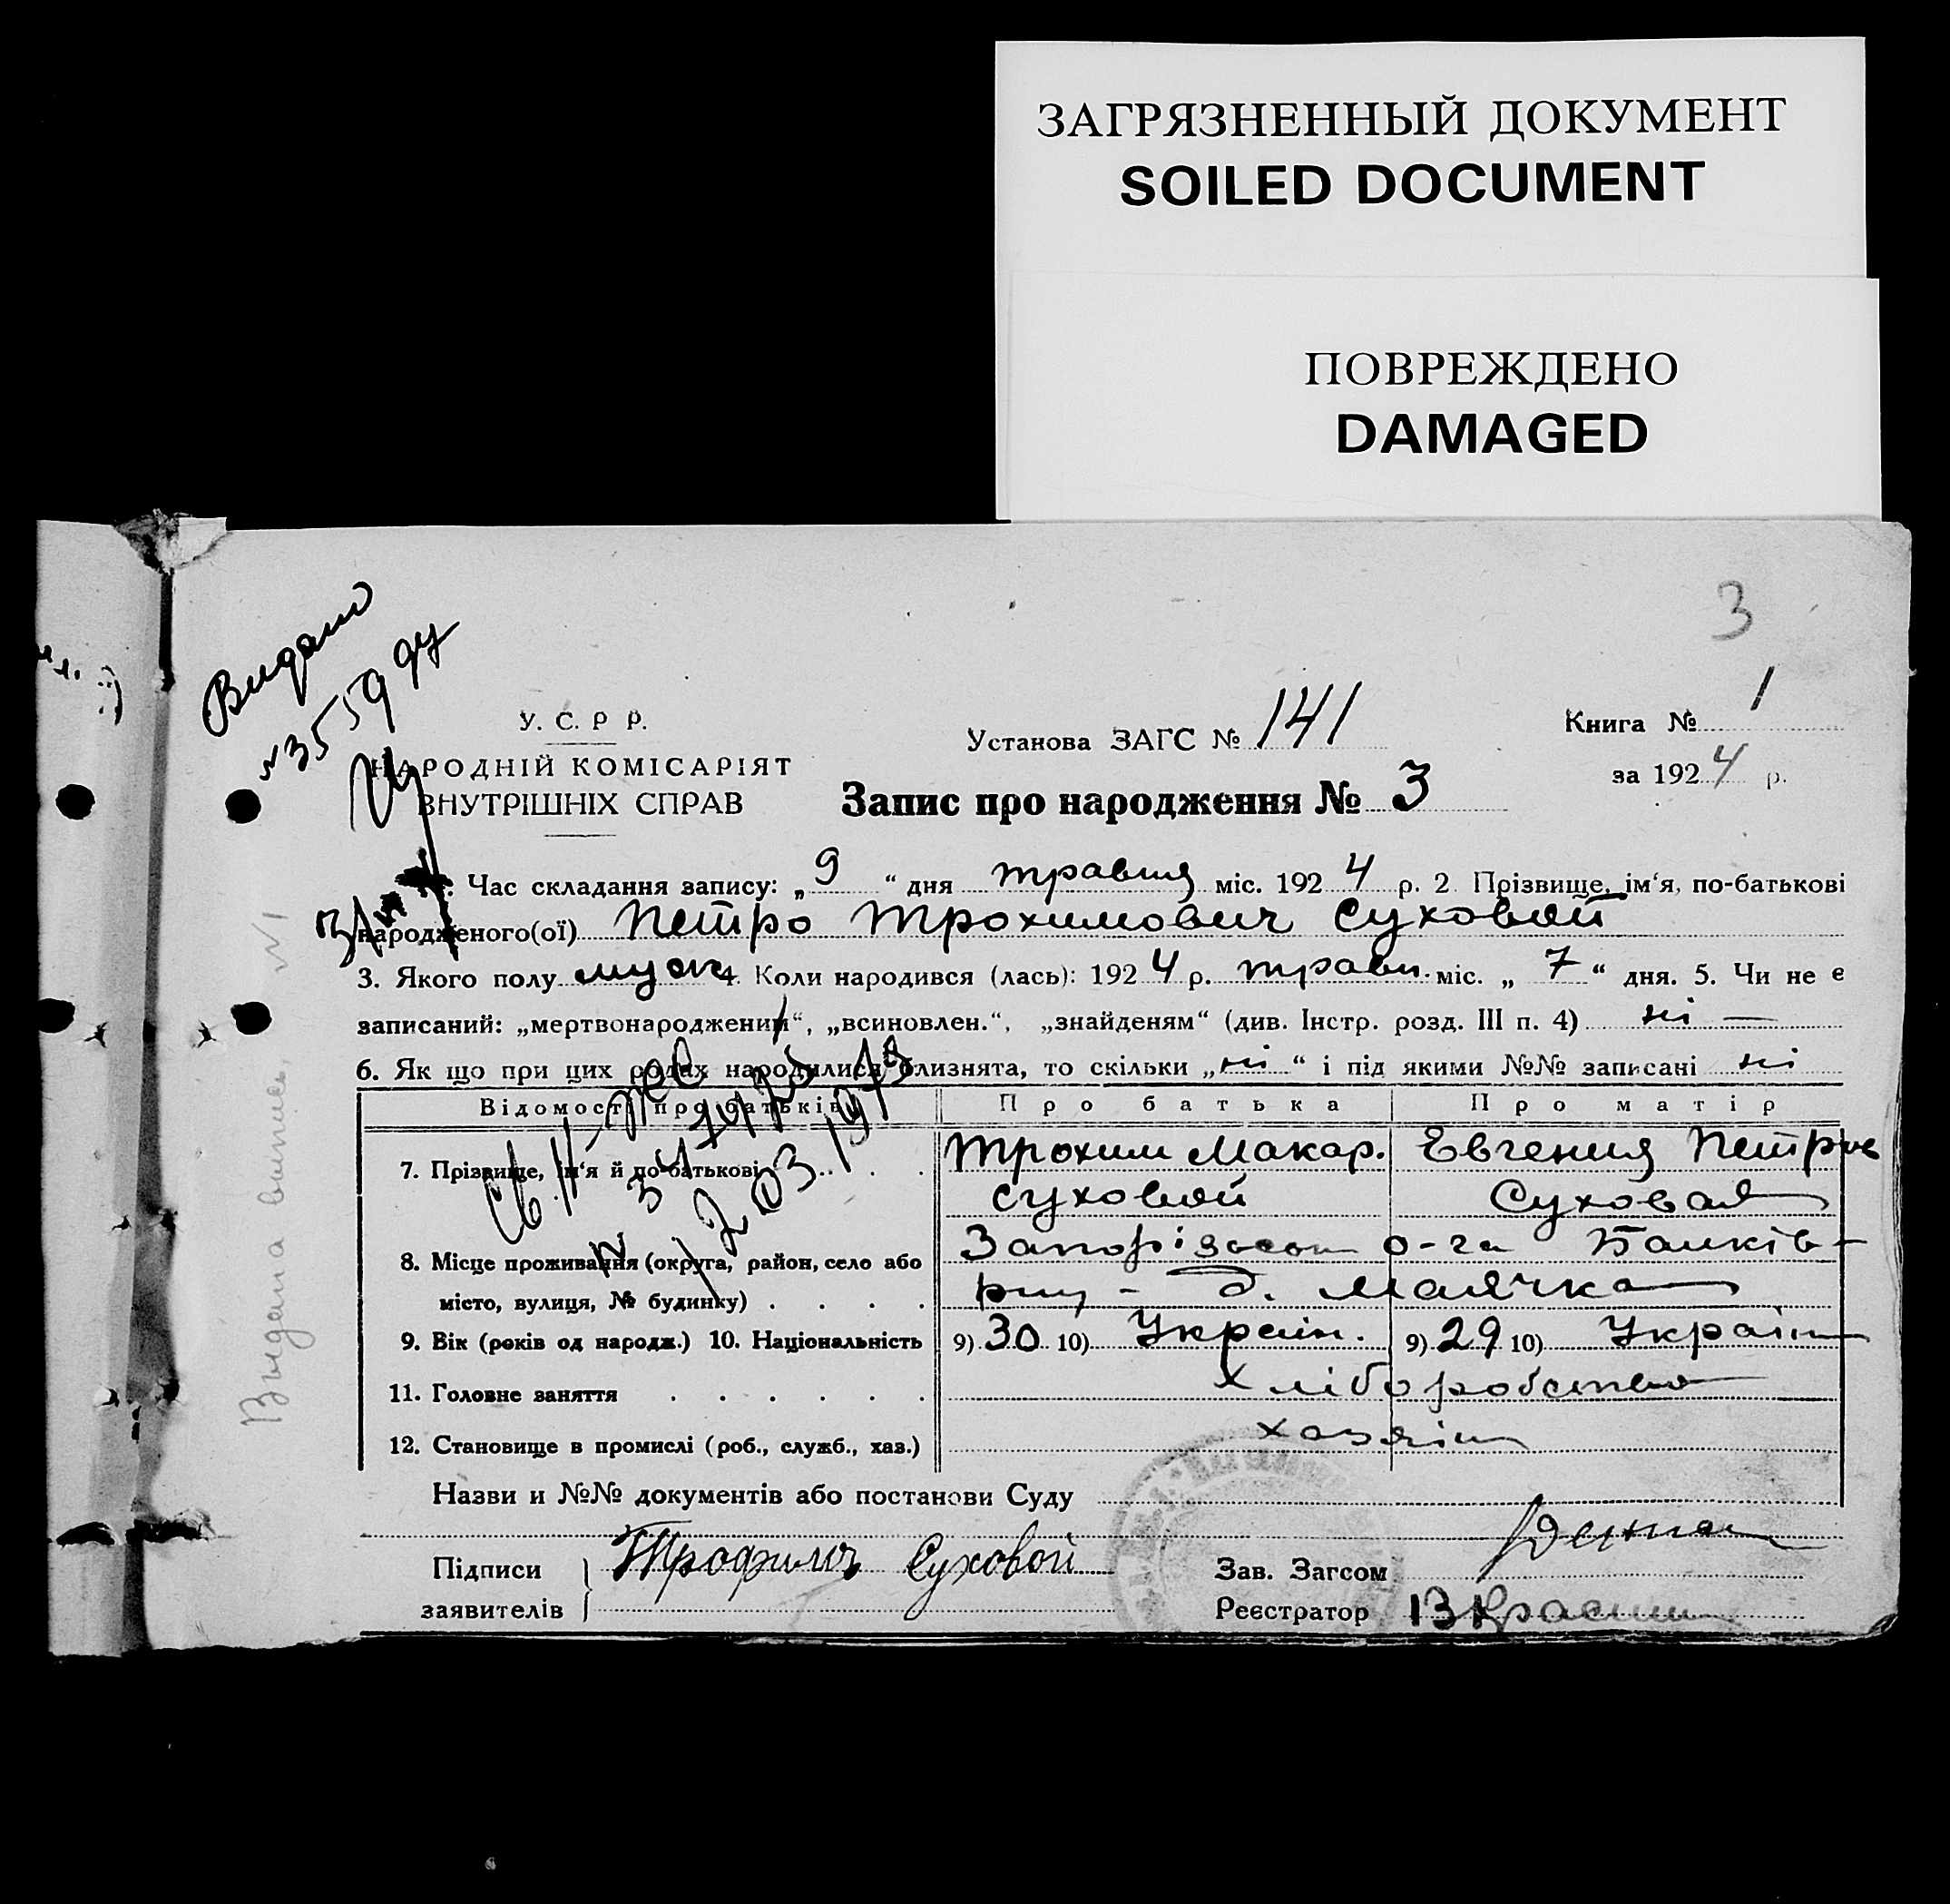 ЗАГРЯЗНЕННЫЙ ДОКУМЕНТ
SOILED DOCUMENT
ПОВРЕЖДЕНО
DAMAGED
3
Видано
У. С. Р Р.
НАРОДНІЙ КОМІСАРІЯТ
ВНУТРІШНІХ СПРАВ
Установа ЗАГС № 141
Книга № 1
за 1924 р.
Запис про народження № 3
Час складання запису: „9“ дня травня міс. 1924 р. 2 Прізвище, ім‘я, по-батькові
народженого(ої) Петро Трохимович Суховой
3. Якого полу муж 4. Коли народився (лась): 1924 р. травн. міс. „7“ дня. 5. Чи не є
записаний: „мертвонароджений“, „всиновлен.“, „знайденям“ (див. Інстр. розд. III п. 4) ні —
6. Як що при цих родах народилися близнята, то скільки „ні“ і під якими №№ записані ні
Відомості про батьків Про батька Про матір
7. Прізвище, ім‘я й по-батькові Трохим Макар. Суховой
Евгения Петров Суховая
8. Місце проживання (округа, район, село або
місто, вулиця, № будинку)
д. Маячка
9. Вік (років од народж.) 10. Національність 9) 30 10) Украін. 9) 29 10) Украін
11. Головне заняття хліборобство
12. Становище в промислі (роб., служб., хаз.) хазяін
Назви и №№ документів або постанови Суду
Підписи
заявителів
Трофим Суховой
Зав. Загсом
Реєстратор
Выдана выпись №1